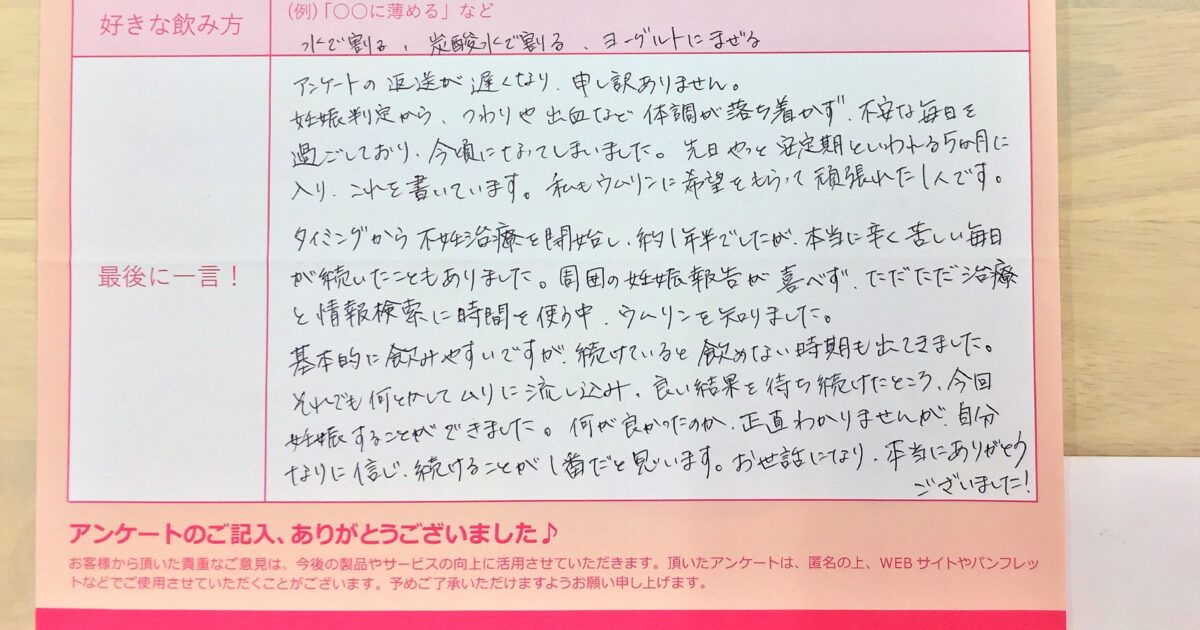 好きな飲み方
(例)「〇〇に薄める」など
水で割る、炭酸水で割る、ヨーグルトにまぜる
最後に一言！
アンケートの返送が遅くなり、申し訳ありません。
妊娠判定から、つわりや出血など体調が落ち着かず、不安な毎日を
過ごしており、今頃になってしまいました。先日やっと安定期といわれる5ヶ月に
入り、これを書いています。私もウムリンに希望をもらって頑張れた1人です。
タイミングから不妊治療を開始し、約1年半でしたが、本当に辛く苦しい毎日
が続いたこともありました。周囲の妊娠報告が喜べず、ただただ治療
と情報検索に時間を使う中、ウムリンを知りました。
基本的に飲みやすいですが、続けていると飲めない時期も出てきました。
それでも何とかしてムリに流し込み、良い結果を待ち続けたところ、今回
妊娠することができました。何が良かったのか、正直わかりませんが、自分
なりに信じ、続けることが1番だと思います。お世話になり、本当にありがとう
ございました!
アンケートのご記入、ありがとうございました♪
お客様から頂いた貴重なご意見は、今後の製品やサービスの向上に活用させていただきます。頂いたアンケートは、匿名の上、WEBサイトやパンフレッ
トなどでご使用させていただくことがございます。予めご了承いただけますようお願い申し上げます。